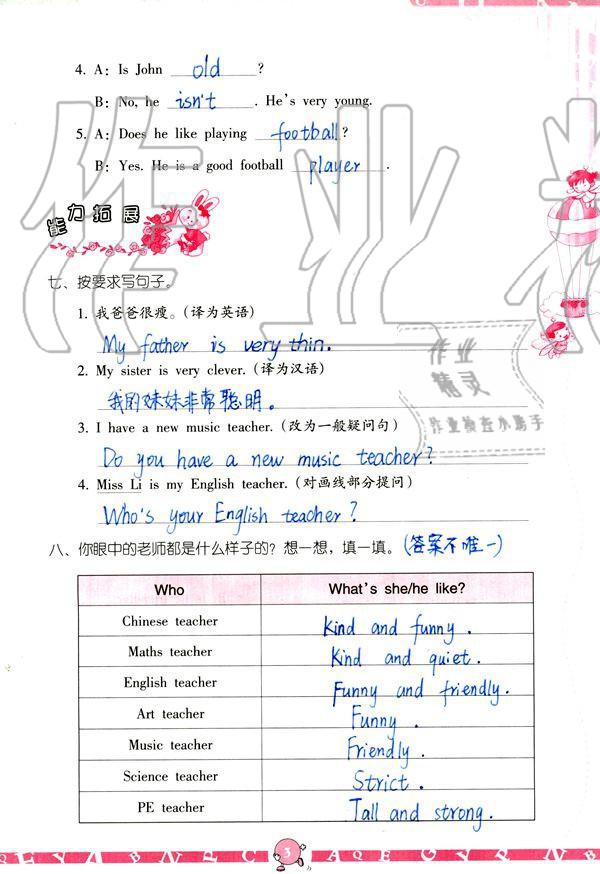 4. A: Is John old ?
B: No, he isn't . He's very young.
5. A: Does he like playing football ?
B: Yes. He is a good football player .
能力拓展
七、按要求写句子。
1. 我爸爸很瘦。(译为英语)
My father is very thin.
2. My sister is very clever. (译为汉语)
我的妹妹非常聪明。
3. I have a new music teacher. (改为一般疑问句)
Do you have a new music teacher?
4. Miss Li is my English teacher. (对画线部分提问)
Who's your English teacher?
八、你眼中的老师都是什么样子的？想一想，填一填。(答案不唯一)
Who What's she/he like?
Chinese teacher Kind and funny.
Maths teacher Kind and quiet.
English teacher Funny and friendly.
Art teacher Funny.
Music teacher Friendly.
Science teacher Strict.
PE teacher Tall and strong.
3
作业
精灵
作业检查小助手